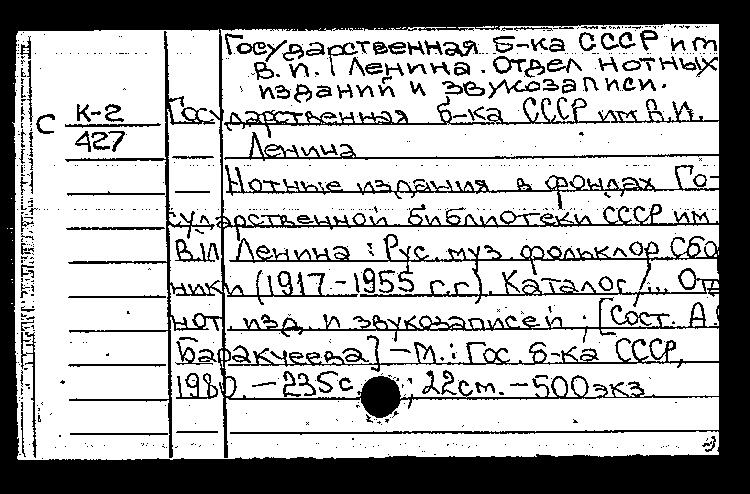 Государственная б-ка СССР им
В. И. Ленина. Отдел нотных
изданий и звукозаписи.
С К-2
427
Государственная б-ка СССР им В.И.
Ленина
— Нотные издания в фондах Го-
сударственной библиотеки СССР им.
В.И Ленина : Рус. муз. фольклор Сбо
ники (1917-1955 г.г). Каталог /... Отд
нот. изд. и звукозаписей ; [Сост. А.С
Баракчеева] — М.: Гос. б-ка СССР,
1980. — 235с ; 22см. — 500экз